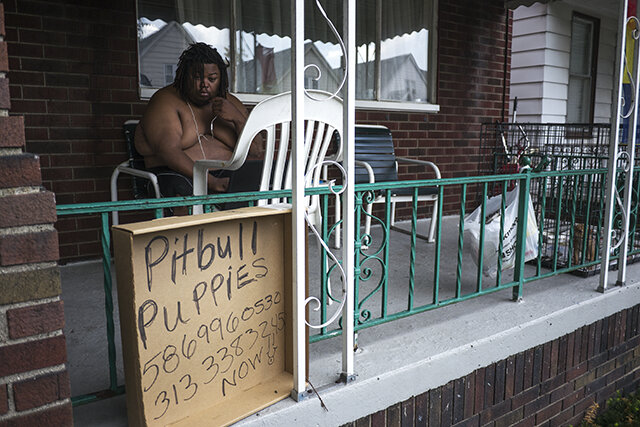 Pitbull
Puppies
5869960530
313 3383245
NOW!!